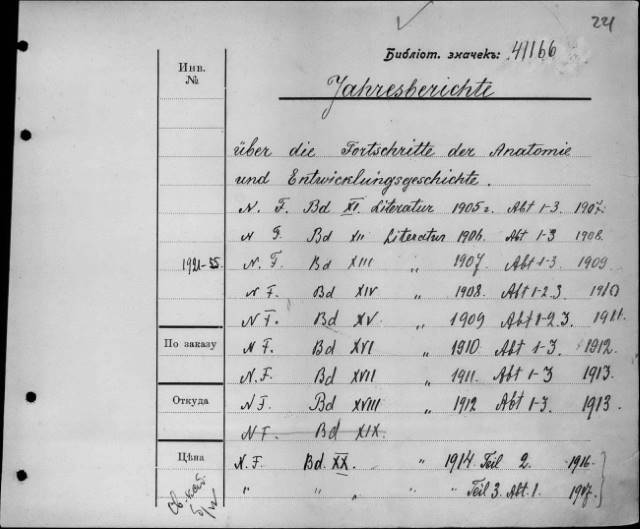 24
Библіот. значекъ: 41166
Инв.
№
Jahresberichte
über die Fortschritte der Anatomie
und Entwicklungsgeschichte.
N. F. Bd XI. Literatur 1905 г. Abt 1-3. 1907.
N F. Bd XII Literatur 1906. Abt 1-3 1908.
1921-55 N. F. Bd XIII „ 1907. Abt 1-3. 1909
N F. Bd XIV „ 1908. Abt 1-2. 3 1910
N F. Bd XV. „ 1909 Abt 1-2. 3. 1911.
По заказу N F. Bd XVI „ 1910. Abt 1-3. 1912.
N. F. Bd XVII „ 1911. Abt 1-3 1913.
Откуда N F. Bd XVIII „ 1912 Abt 1-3. 1913.
N F. Bd XIX.
Цѣна N. F. Bd. XX. „ 1914 Teil 2. 1916.
„ „ „ „ Teil 3. Abt. 1. 1917.